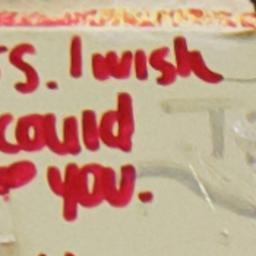 rs. I wish
could
❤ you.
TS